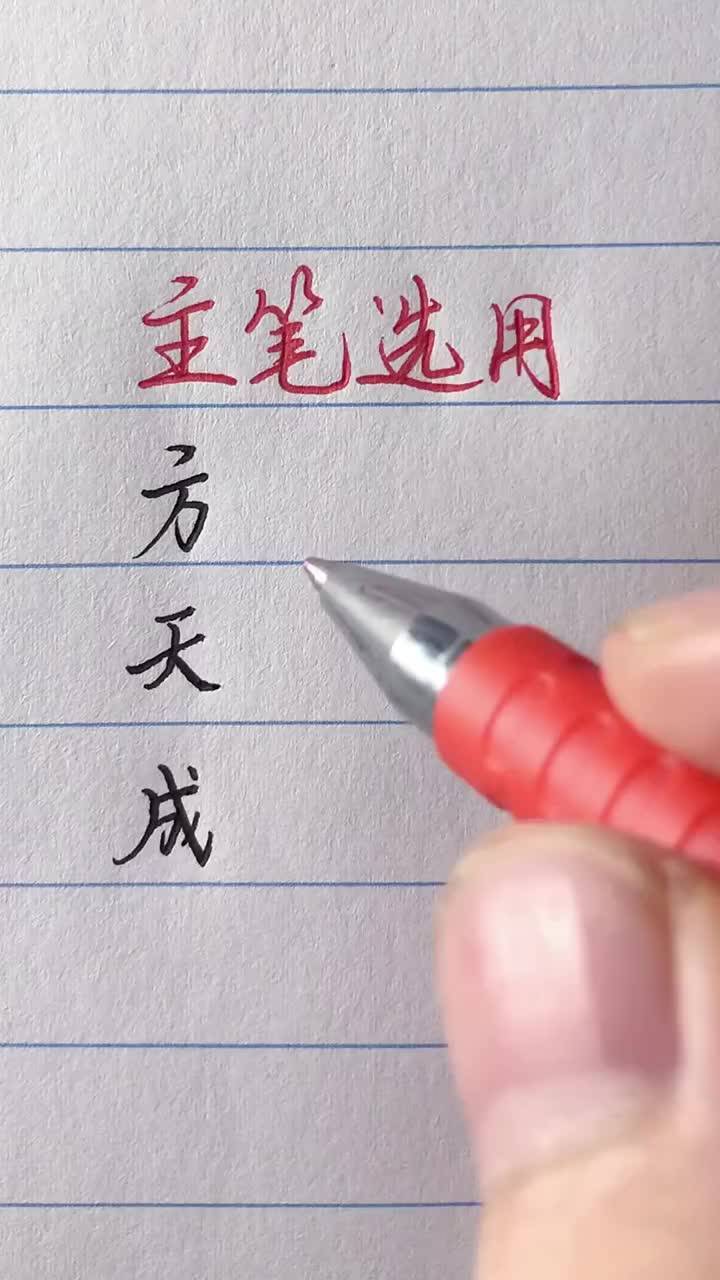 主笔选用
方
天
成